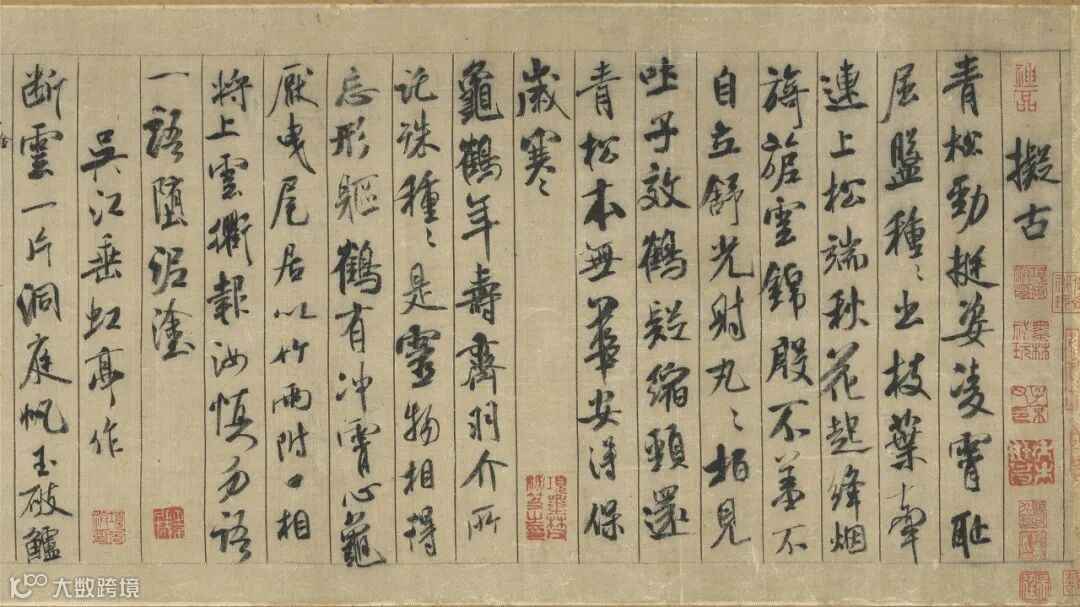 擬古
青松勁挺姿凌霄恥
屈盤種〻出枝葉牽
連上松端秋花起絳烟
旖旎雲錦殷不羞不
自立舒光射丸〻柏見
吐子效鶴疑縮頸還
青松本無華安得保
歲寒〻
龜鶴年壽齊羽介所
託殊種〻是靈物相得
忘形軀鶴有沖霄心龜
厭曳尾居以竹兩附口相
將上雲衢報汝慎勿語
一語墮泥塗
吳江垂虹亭作
斷雲一片洞庭帆玉破鱸
大数跨境